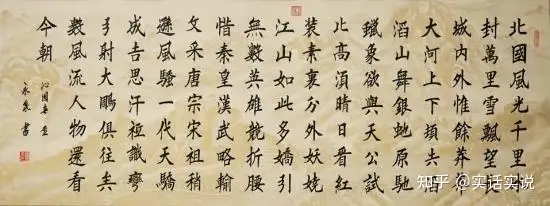 北國風光千里冰
封萬里雪飄望長
城内外惟餘莽莽
大河上下頓失滔
滔山舞銀虵原馳
蠟象欲與天公試
比高須晴日看紅
裝素裹分外妖嬈
江山如此多嬌引
無數英雄競折腰
惜秦皇漢武略輸
文采唐宗宋祖稍
遜風騷一代天驕
成吉思汗祗識彎
弓射大鵰俱往矣
數風流人物還看
今朝
沁園春雪
永泉書
知乎 @实话实说